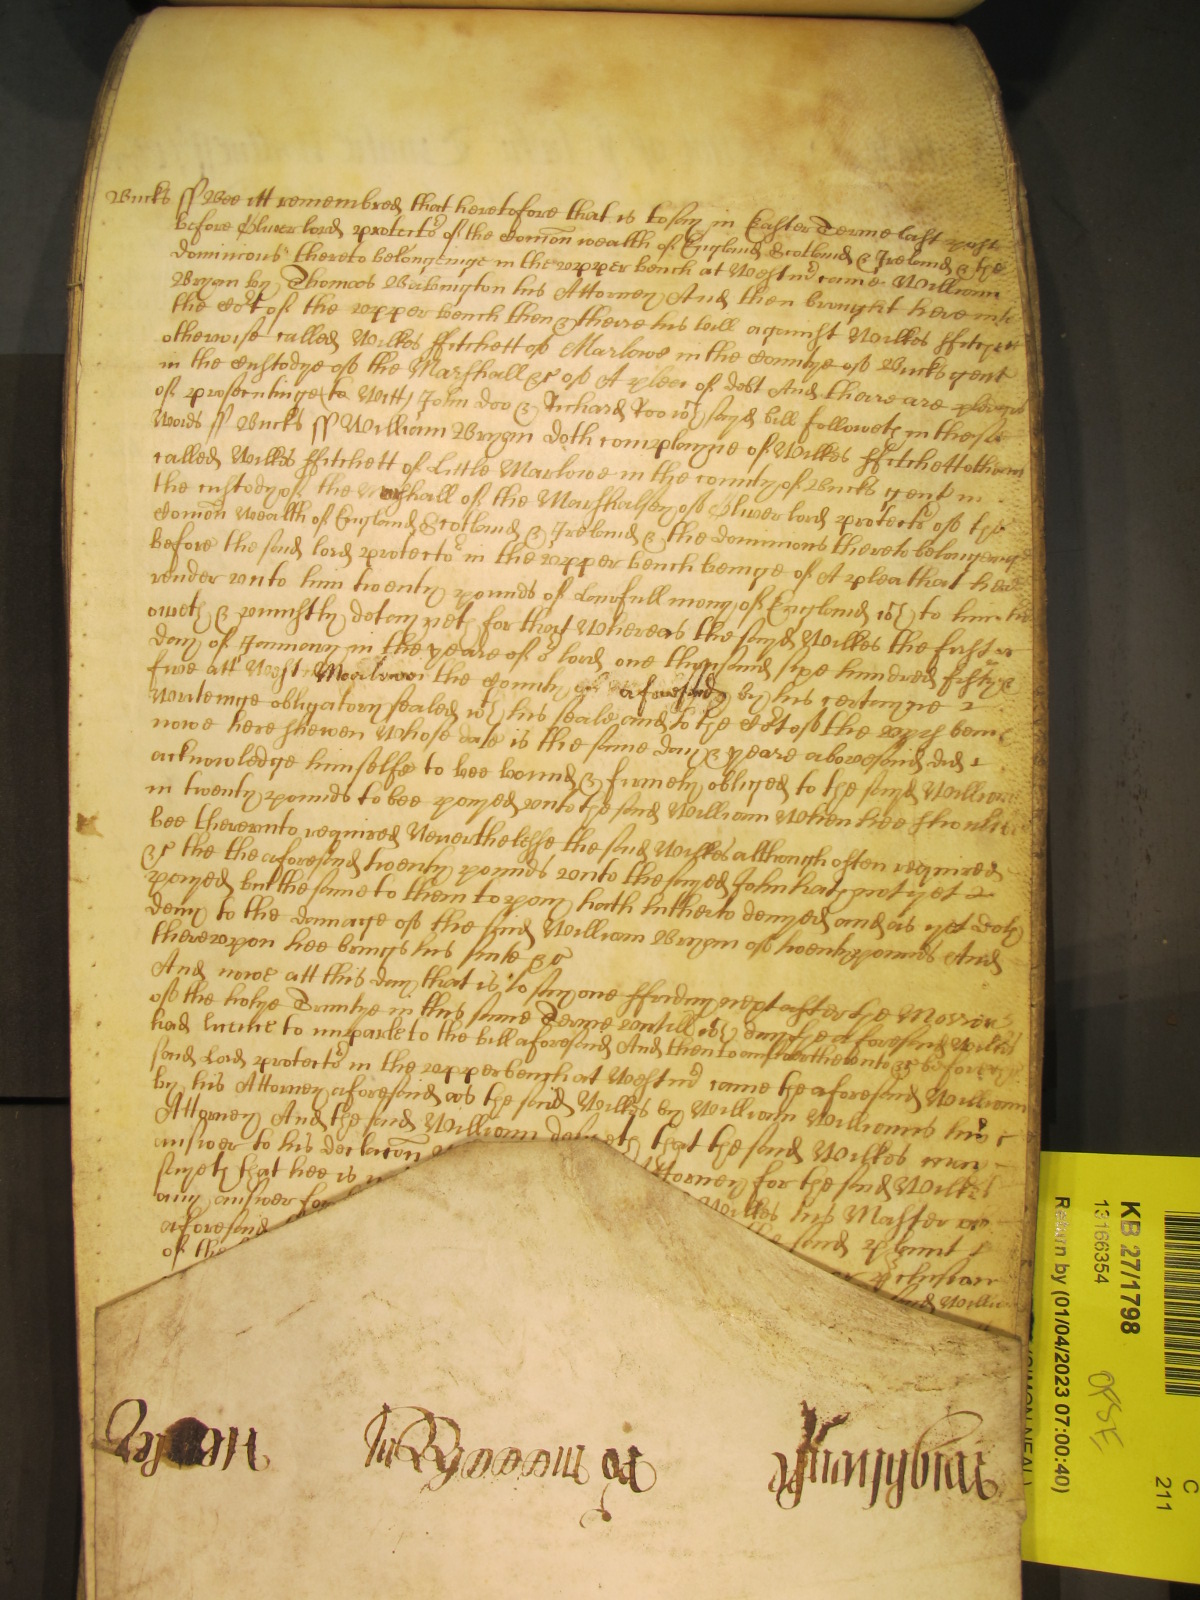 Bucks ss Bee itt remembred that heretofore that is to say in Easter Terme last past
before Oliver lord protector of the Comon wealth of England Scotland & Ireland & the
dominions thereto belonginge in the upper bench at Westmr came William
Bryan by Thomas Babington his Attorney And then brought here into
the Cort of the upper bench then & there his bill against Wilkes ffitchett
otherwise called Wilkes ffitchett of Marlowe in the County of Bucks gent
in the Custodye of the Marshall &c of A plea of debt And there are pledges
of prosecutinge to witt John Doo & Richard Roo wch sayd bill followeth in theise
words ss Bucks ss William Bryan doth complayne of Wilkes ffitchett otherwise
called Wilkes ffitchett of Little Marlowe in the county of Bucks gent in
the custody of the Marshall of the Marshalsey of Oliver lord protector of the
Comon Wealth of England Scotland & Ireland & the dominions thereto belonginge
before the said lord protector in the upper bench beinge of A plea that hee
render unto him twenty pounds of lawfull mony of England wch to him he
oweth & uniustly detayneth for that Whereas the sayd Wilkes the first
day of January in the yeare of or lord one thousand sixe hundred fifty &
five att West Marlow in the County of aforesaid by his certayne
writeinge obligatory sealed wth his seale and to the Cort of the upper bench
nowe here shewen Whose date is the same day & yeare abovesaid did
acknowledge himselfe to bee bound & firmely obliged to the sayd William
in twenty pounds to bee payed unto the said William When hee should
bee thereunto required Neverthelesse the said Wilkes although often required
&c the the aforesaid twenty pounds unto the sayed John hath not yet
payed but the same to them to pay hath hitherto denyed and as yet doth
deny to the damage of the said William Bryan of twenty pounds And
thereupon hee brings his suite &c
And nowe att this day that is to say one ffriday next after the Morrow
of the holye Trinitye in this same Terme untill wch day the aforesaid Wilkes
had licence to imparle to the bill aforesaid And then to answer thereunto &c before the
said Lord protector in the upper bench at Westmr came the aforesaid William
by his Attorney aforesaid as the said Wilkes by William Williams his
Attorney And the said William that the said Wilkes may
answer to his declaracon
sayeth that hee is Attorney for the said Wilkes
any answer for Wilkes his Master
aforesaid the said
of the
said William
KB 27/1798
13166354
Return by (01/04/2023 07:00:40)
C
211